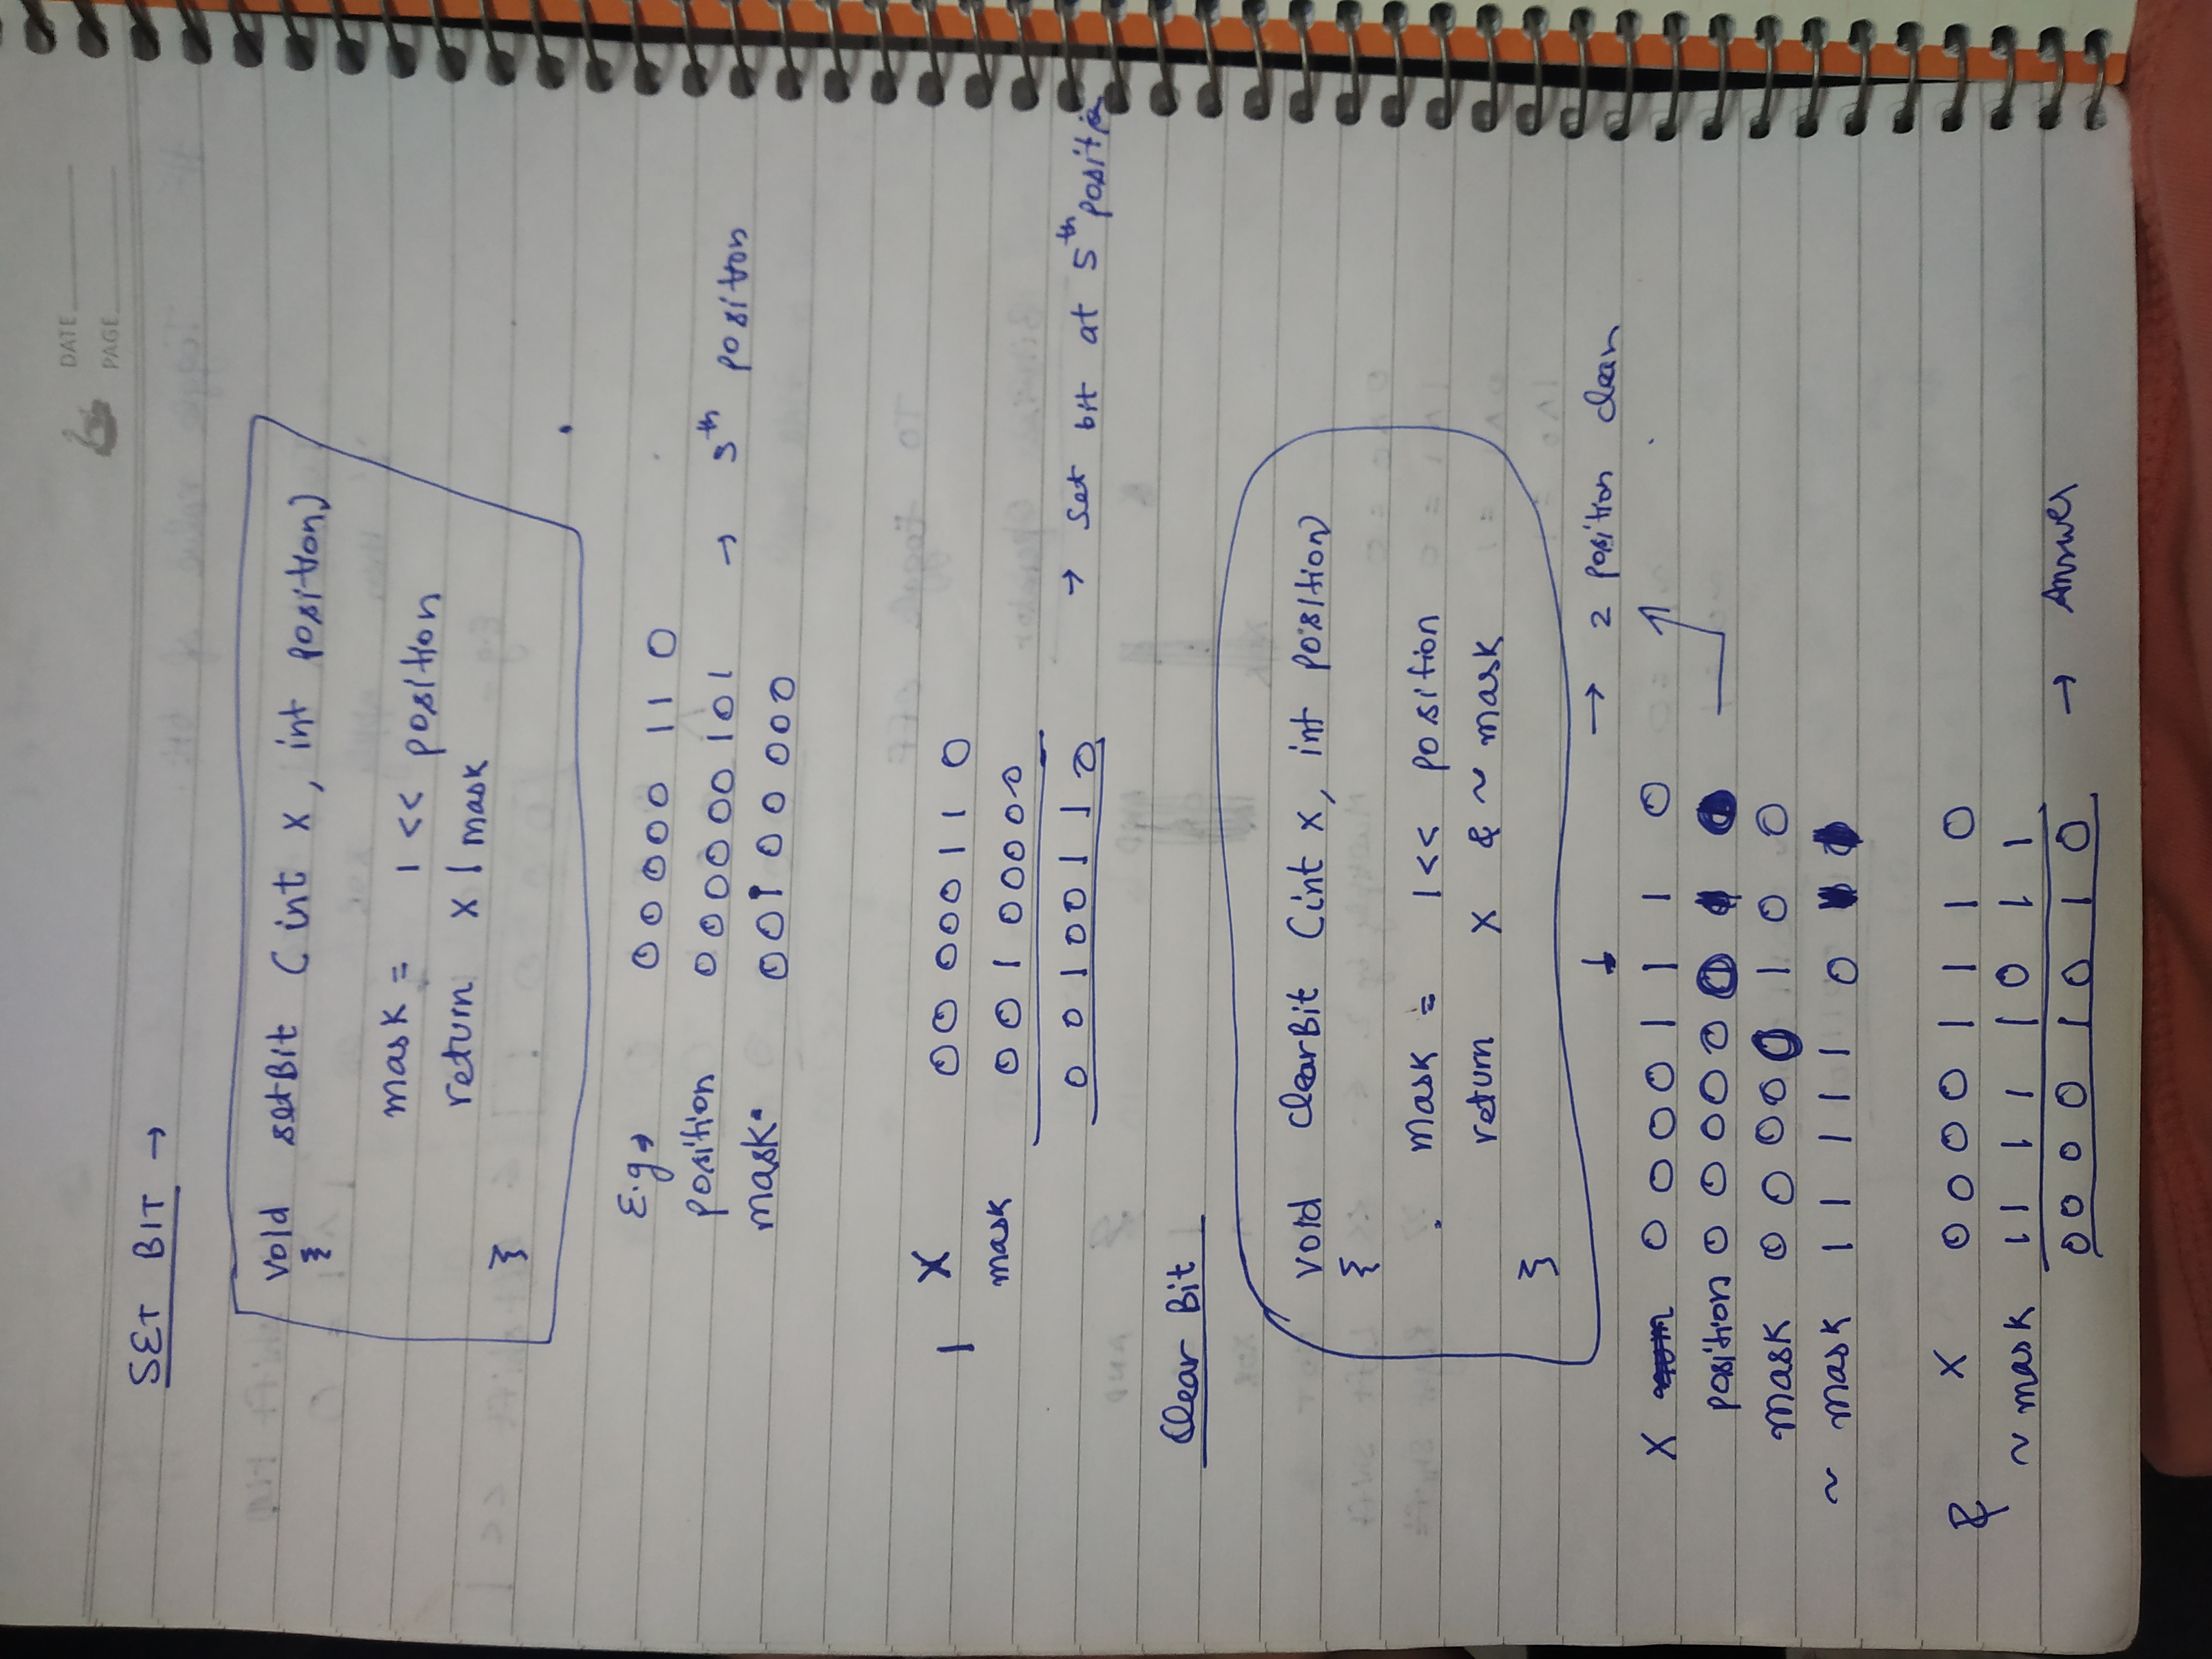 DATE
PAGE
SEt BIT →
void setBit (int x, int position)
{
mask = 1 << position
return x | mask
}
E.g→ 00000110
position 00000101 → 5th position
mask 00100000
| X 00000110
mask 00100000
00100110 → set bit at 5th position
Clear Bit
void clearBit (int x, int position)
{
mask = 1 << position
return x & ~ mask
}
↓ → 2 position clear
X 00001110
position 00000010
mask 00000100
~ mask 11111011
& X 00001110
~ mask 11111011
00001010 → Answer